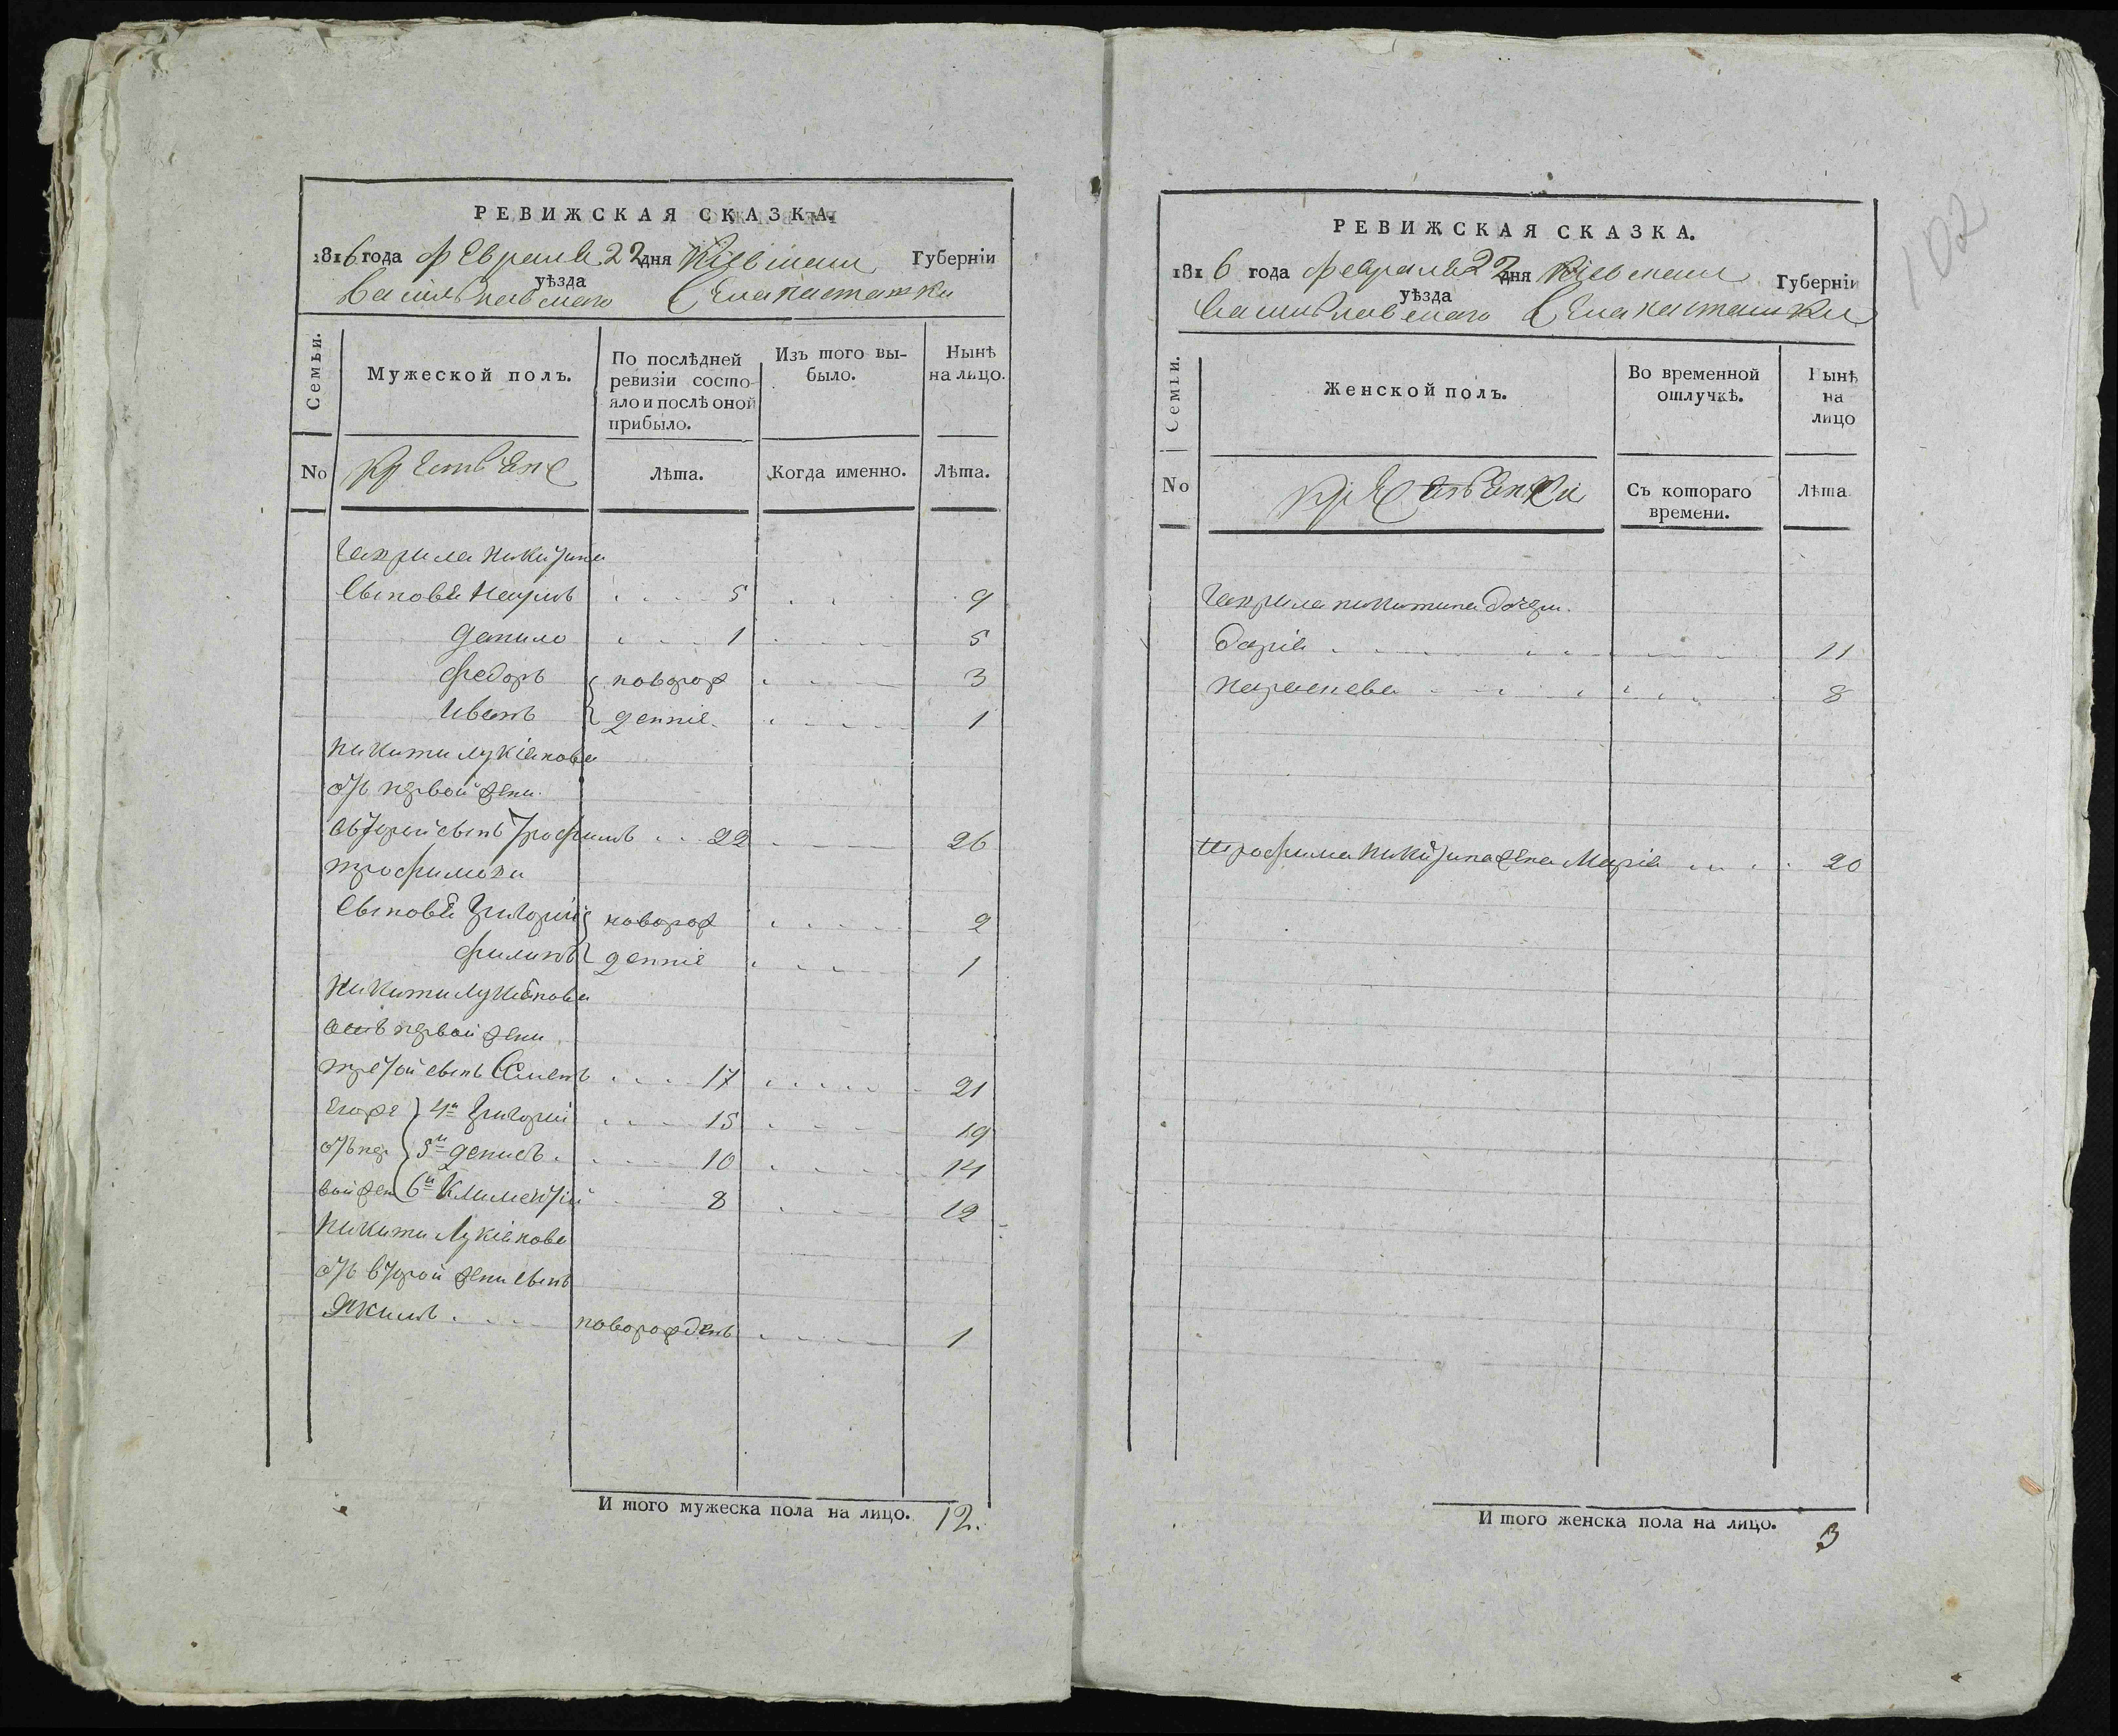 РЕВИЖСКАЯ СКАЗКА.
1816 года февраля 22 дня Кіевской Губерніи
Васильковскаго уѣзда Села пасташки
Семьи.
Мужеской полъ.
По послѣдней ревизіи состояло и послѣ оной прибыло.
Изъ того выбыло.
Нынѣ на лицо.
No
Крестьяне
Лѣта.
Когда именно.
Лѣта.
Гаврила Никитина
Сыновья Наумъ 5 9
Данило 1 5
Федоръ новорож 3
Иванъ денніе 1
Никиты Лукіянова
отъ первой жены
вторый сынъ Трофимъ 22 26
Трофимови
Сыновья Григорій новорож 2
Филипъ денніе 1
Никиты Лукіянова
отъ первой жены
третой сынъ Семенъ 17 21
Егоже 4й Григорій 15 19
отъ пер 5й Денисъ 10 14
вой жен 6й Климентій 8 12
Никиты Лукіянова
отъ второй жены сынъ
Якимъ новорожденъ 1
И того мужеска пола на лицо. 12.
102
РЕВИЖСКАЯ СКАЗКА.
1816 года февраля 22 дня Кіевской Губерніи
Васильковскаго уѣзда Села пасташки
Семьи.
Женской полъ.
Во временной отлучкѣ.
Нынѣ на лицо
No
Крестьянки
Съ котораго времени.
Лѣта
Гаврила никитина дочери
Дарія 11
Параскева 8
Трофима Никитина жена Марія 20
И того женска пола на лицо. 3